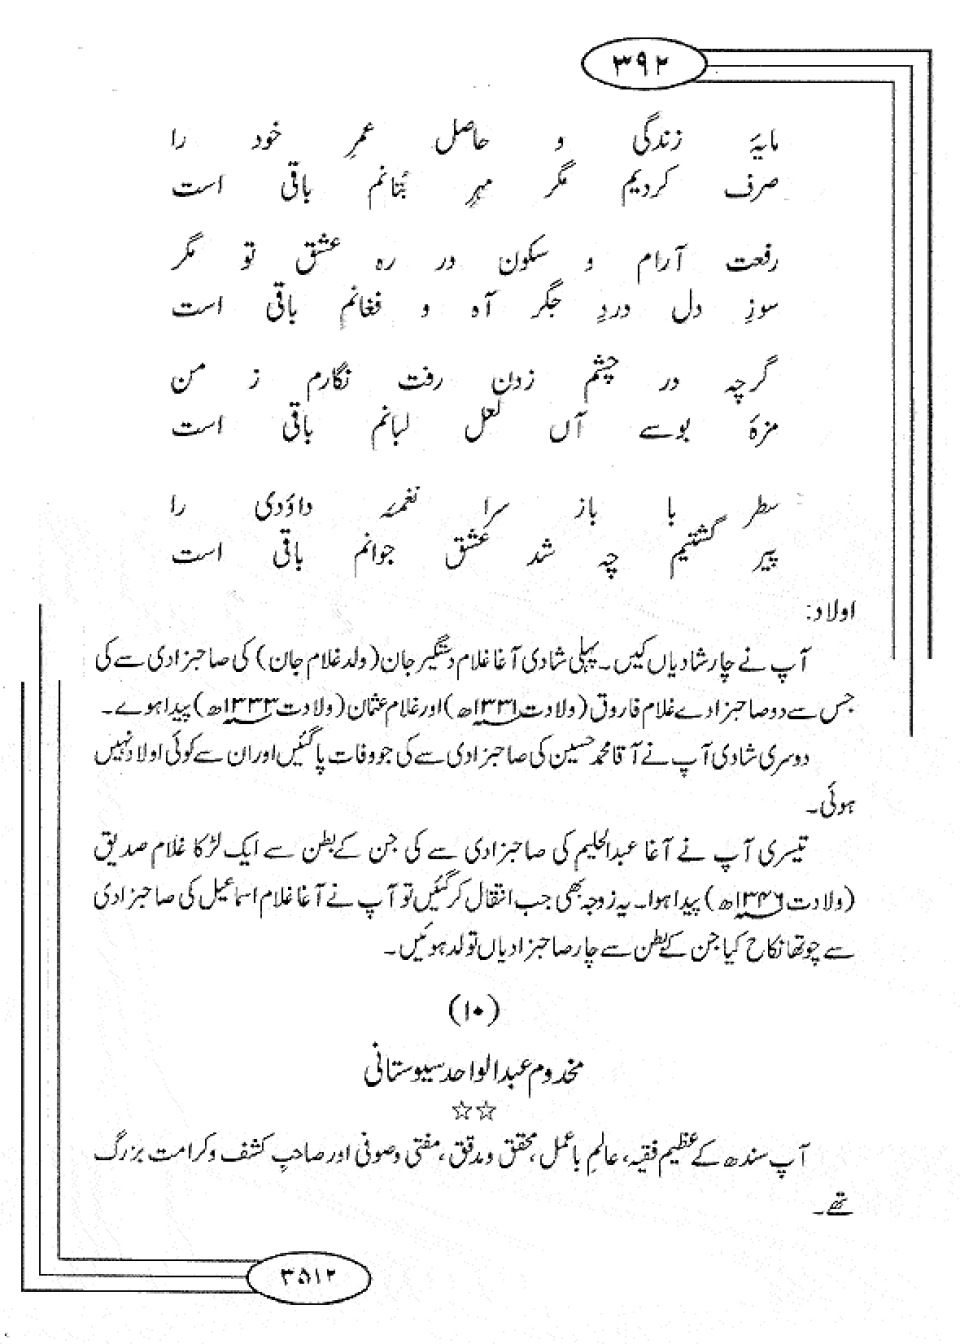 ۳۹۲
مایۂ زندگی و حاصل عمرِ خود را
صرف کردیم مگر مہرِ بُتانم باقی است
رفعت آرام و سکون در رہ عشق تو مگر
سوزِ دل دردِ جگر آہ و فغانم باقی است
گرچہ در چشم زدن رفت نگارم ز من
مزۂ بوسے آں لعل لبانم باقی است
سطر با باز سرا نغمۂ داؤدی را
پیر گشتیم چہ شد عشق جوانم باقی است
اولاد:
آپ نے چار شادیاں کیں۔ پہلی شادی آغا غلام دستگیر جان (ولد غلام جان) کی صاحبزادی سے کی
جس سے دو صاحبزادے غلام فاروق (ولادت ۱۳۳۱ھ) اور غلام عثمان (ولادت ۱۳۳۳ھ) پیدا ہوے۔
دوسری شادی آپ نے آقا محمد حسین کی صاحبزادی سے کی جو وفات پا گئیں اور ان سے کوئی اولاد نہیں
ہوئی۔
تیسری آپ نے آغا عبدالحلیم کی صاحبزادی سے کی جن کے بطن سے ایک لڑکا غلام صدیق
(ولادت ۱۳۴۶ھ) پیدا ہوا۔ یہ زوجہ بھی جب انتقال کر گئیں تو آپ نے آغا غلام اسماعیل کی صاحبزادی
سے چوتھا نکاح کیا جن کے بطن سے چار صاحبزادیاں تولد ہوئیں۔
(۱۰)
مخدوم عبدالواحد سیوستانی
☆☆
آپ سندھ کے عظیم فقیہ، عالمِ باعمل، محقق و مدقق، مفتی و صوفی اور صاحبِ کشف و کرامت بزرگ
تھے۔
۳۵۱۲